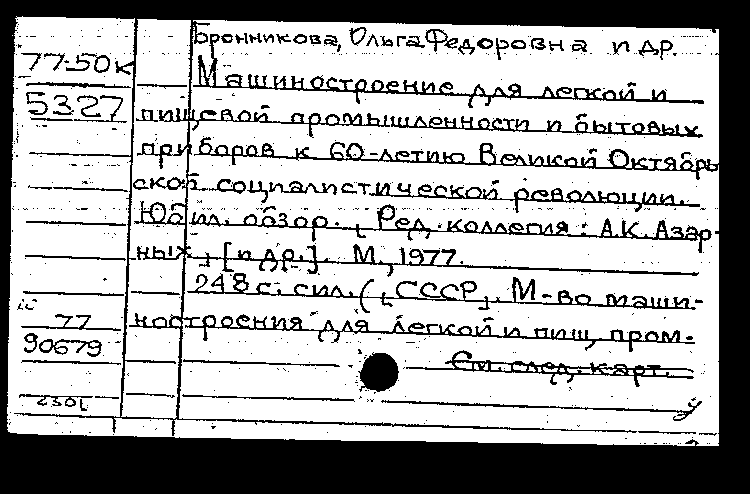 Бронникова, Ольга Федоровна и др.
77-50к Машиностроение для легкой и
5327 пищевой промышленности и бытовых
приборов к 60-летию Великой Октябрь
ской социалистической революции.
Юбил. обзор. [Ред. коллегия: А.К. Азар-
ных, [и др.]. М., 1977.
248 с. с ил. ([СССР]. М-во маши-
77 ностроения для легкой и пищ. пром.
90679 См. след. карт.
2301 У